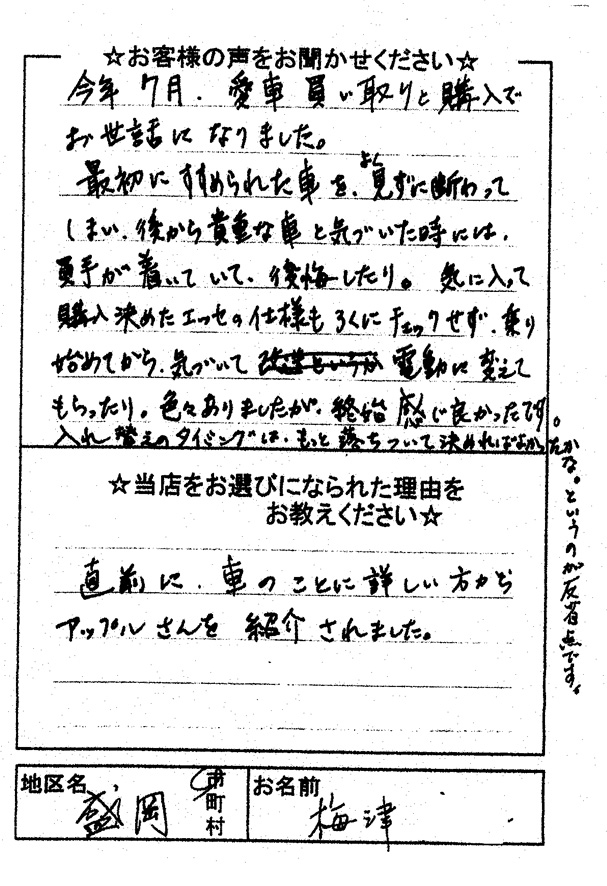 ☆お客様の声をお聞かせください☆
今年7月、愛車買い取りと購入で
お世話になりました。
最初にすすめられた車を、よく見ずに断わって
しまい、後から貴重な車と気づいた時には、
買手が着いていて、後悔したり。気に入って
購入決めたエッセの仕様もろくにチェックせず、乗り
始めてから、気づいて電動に変えて
もらったり。色々ありましたが、終始感じ良かったです。
入れ替えのタイミングは、もっと落ちついて決めればよかったかな。というのが反省点です。
☆当店をお選びになられた理由を
お教えください☆
直前に、車のことに詳しい方から
アップルさんを紹介されました。
地区名 盛岡 市町村 お名前 梅津